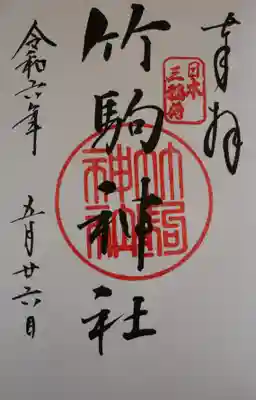 奉拝
日本
三稲荷
竹駒神社
竹駒
神社
令和六年
五月廿六日